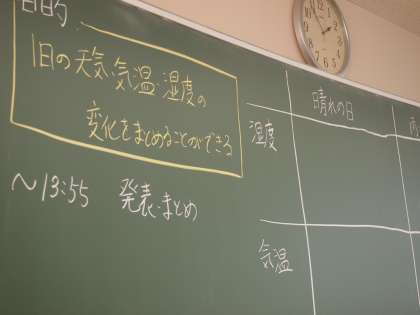 目的
1日の天気、気温、湿度の
変化をまとめることができる
～13:55 発表・まとめ
晴れの日
湿度
気温